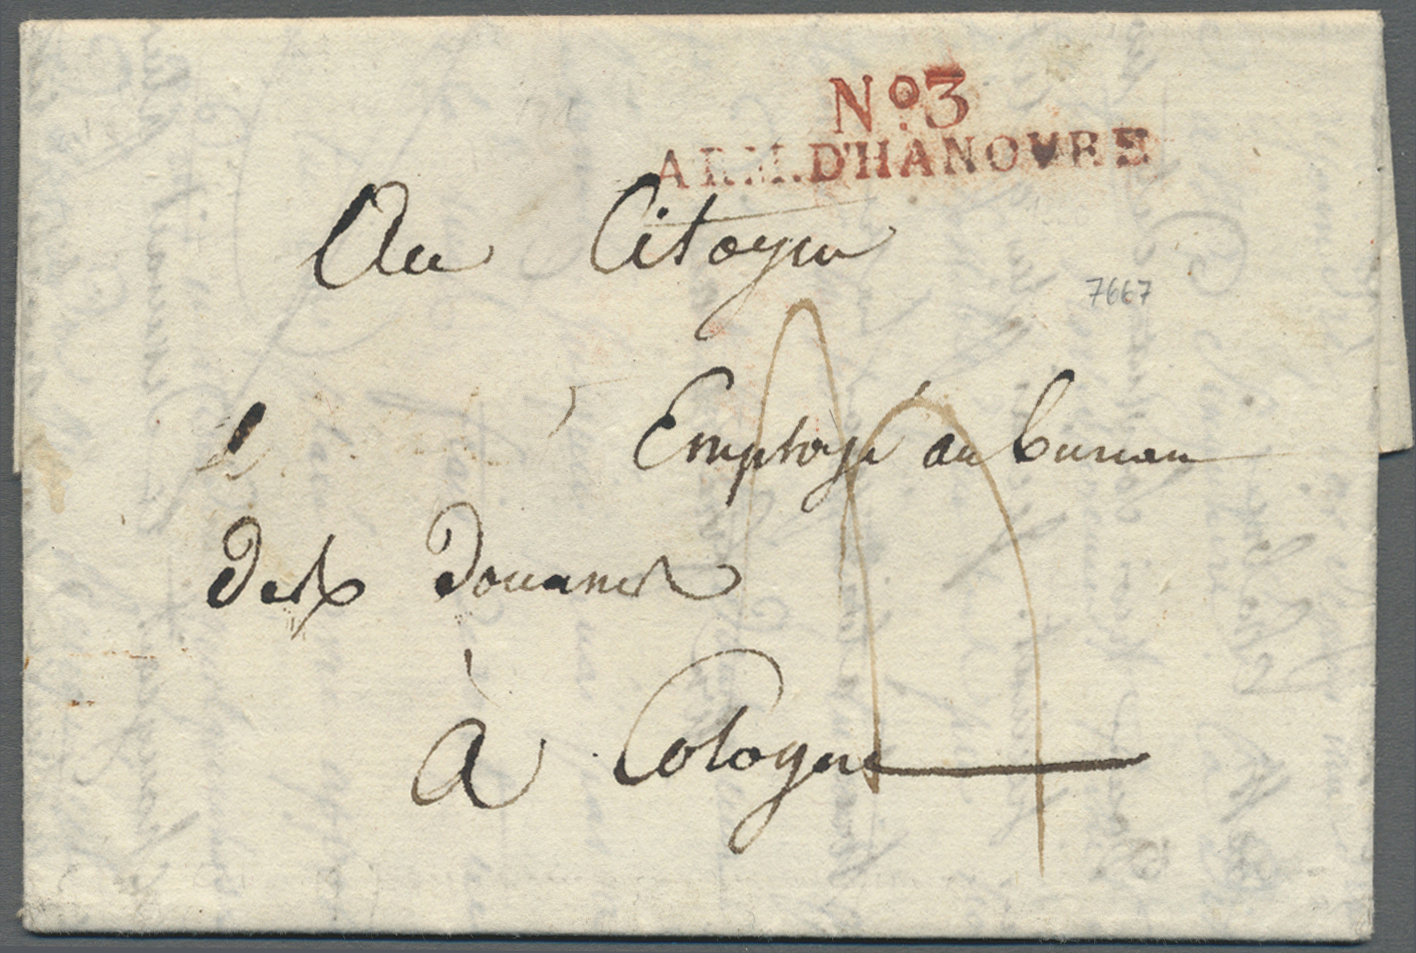 No. 3
ARM. D'HANOVRE
Au Citoyen
7667
Employé au bureau
des Douanes
à Cologne